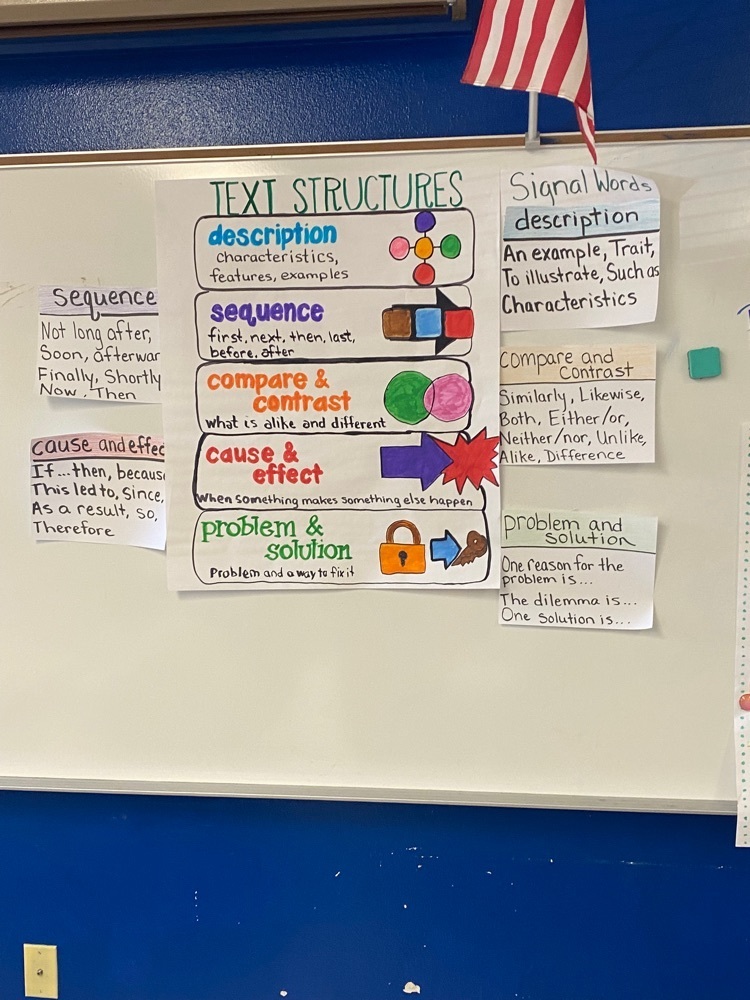 TEXT STRUCTURES
description
characteristics,
features, examples
sequence
first, next, then, last,
before, after
compare &
contrast
What is alike and different
cause &
effect
When something makes something else happen
problem &
solution
Problem and a way to fix it
Sequence
Not long after,
Soon, afterwar
Finally, Shortly
Now, Then
cause and effec
If...then, becaus
This led to, Since,
As a result, so,
Therefore
Signal Words
description
An example, Trait,
To illustrate, Such as
Characteristics
Compare and
contrast
Similarly, Likewise,
Both, Either/or,
Neither/nor, Unlike,
Alike, Difference
problem and
solution
One reason for the
problem is...
The dilemma is...
One solution is...